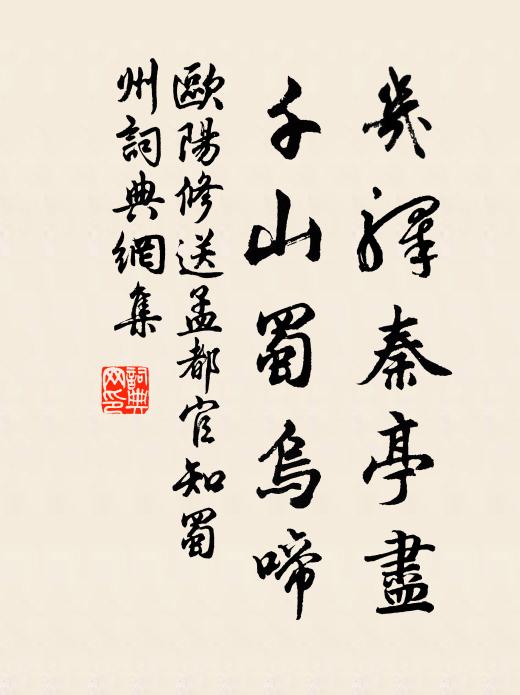 幾驛秦亭盡
千山蜀鳥啼
歐陽修送孟都官知蜀
州詞典網集
詞典
网印